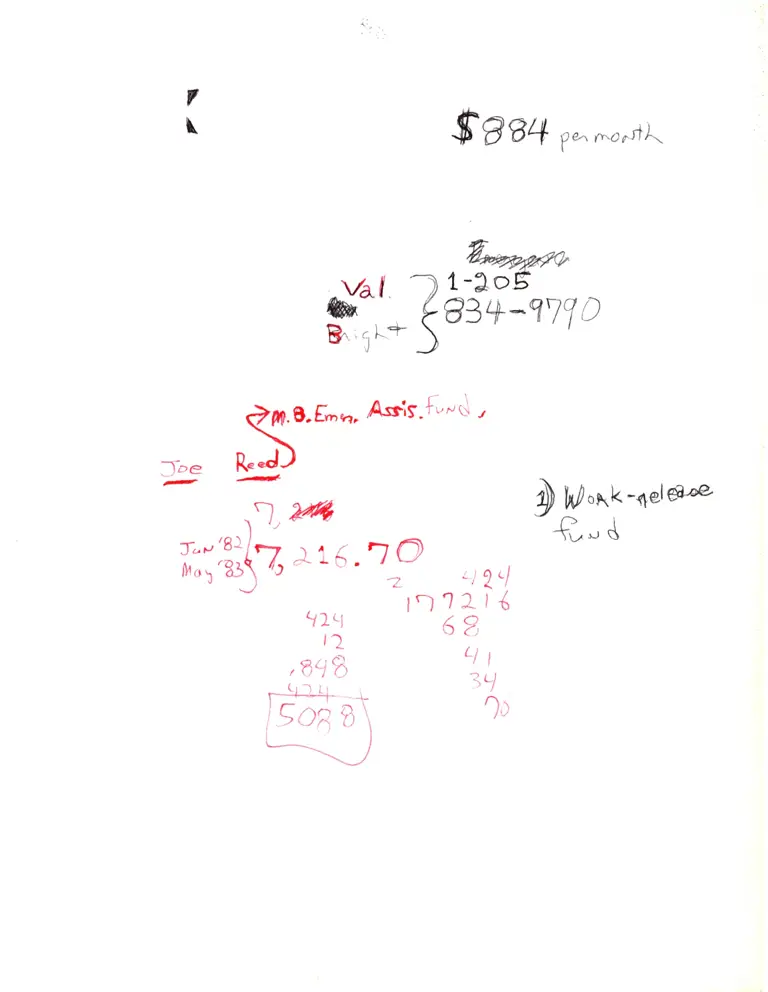 $884 per month
Val. 1-205
Bright 834-9790
M.B. Emer. Assis. Fund,
Joe Reed
7,
Jun '82 7,216.70
May '83
1) Work-release
fund
2 424
17 7216
68
41
34
70
424
12
848
424
5088